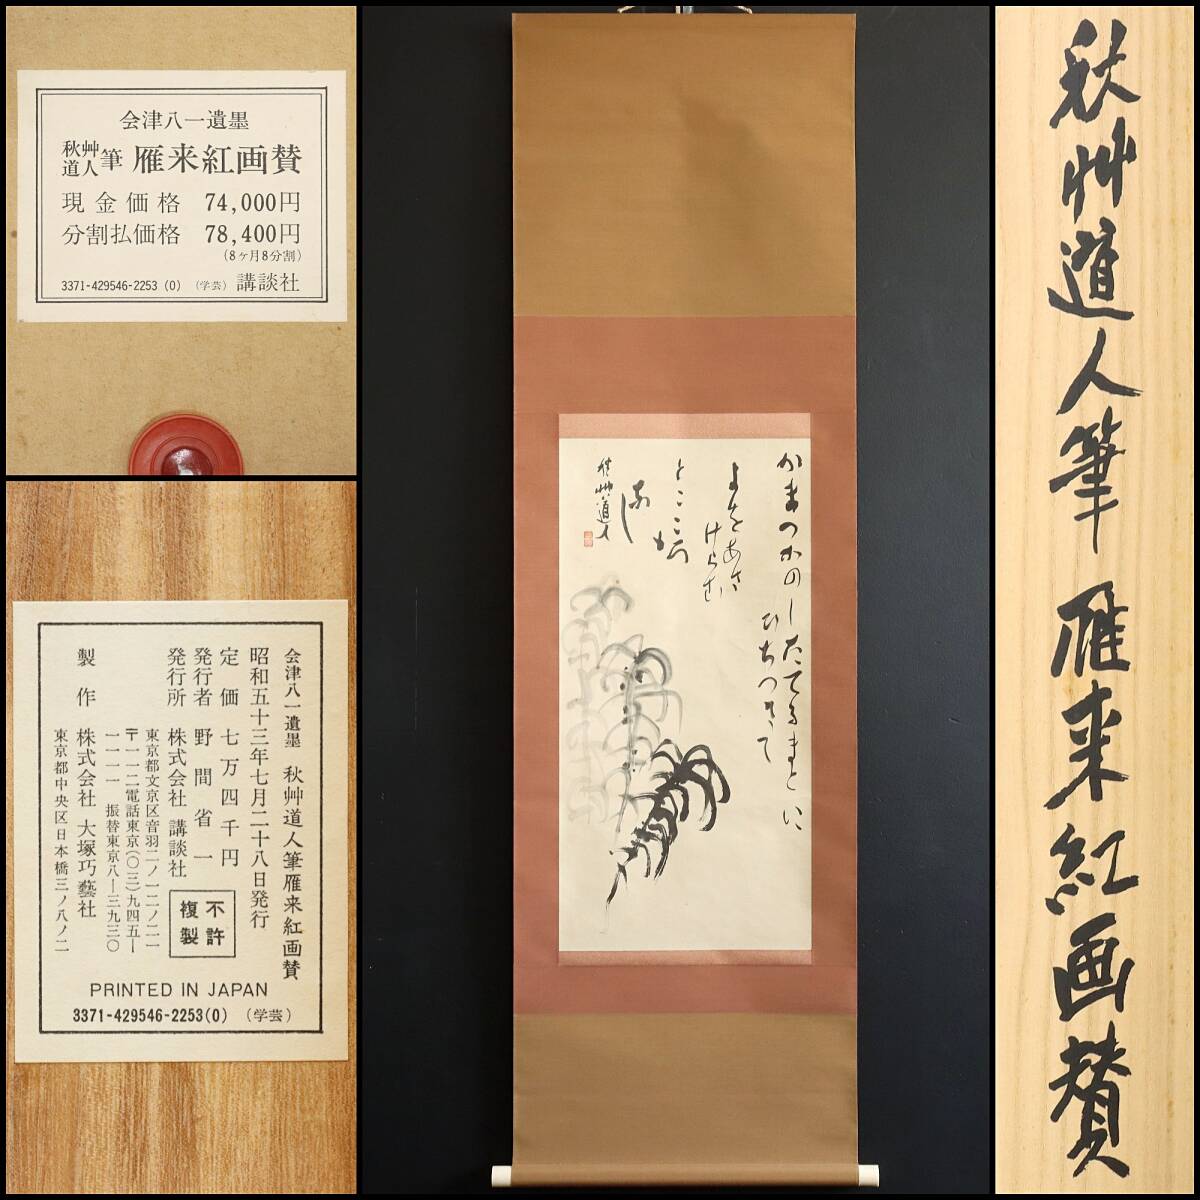 会津八一遺墨
秋艸道人筆 雁来紅画賛
現金価格 74,000円
分割払価格 78,400円
(8ヶ月8分割)
3371-429546-2253 (0) (学芸) 講談社
会津八一遺墨 秋艸道人筆雁来紅画賛
昭和五十三年七月二十八日発行
定価 七万四千円
発行者 野間省一
発行所 株式会社 講談社
東京都文京区音羽二ノ一二ノ二一
〒一一二電話東京(〇三)九四五―
一一一一 振替東京八―三九三〇
製作 株式会社 大塚巧藝社
東京都中央区日本橋三ノ八ノ二
不許
複製
PRINTED IN JAPAN
3371-429546-2253(0) (学芸)
かまつかのしたてるまとに
ひちつきて
よをあさ
けらむ
とこころ
か
なし
秋艸道人
秋艸道人筆 雁来紅画賛